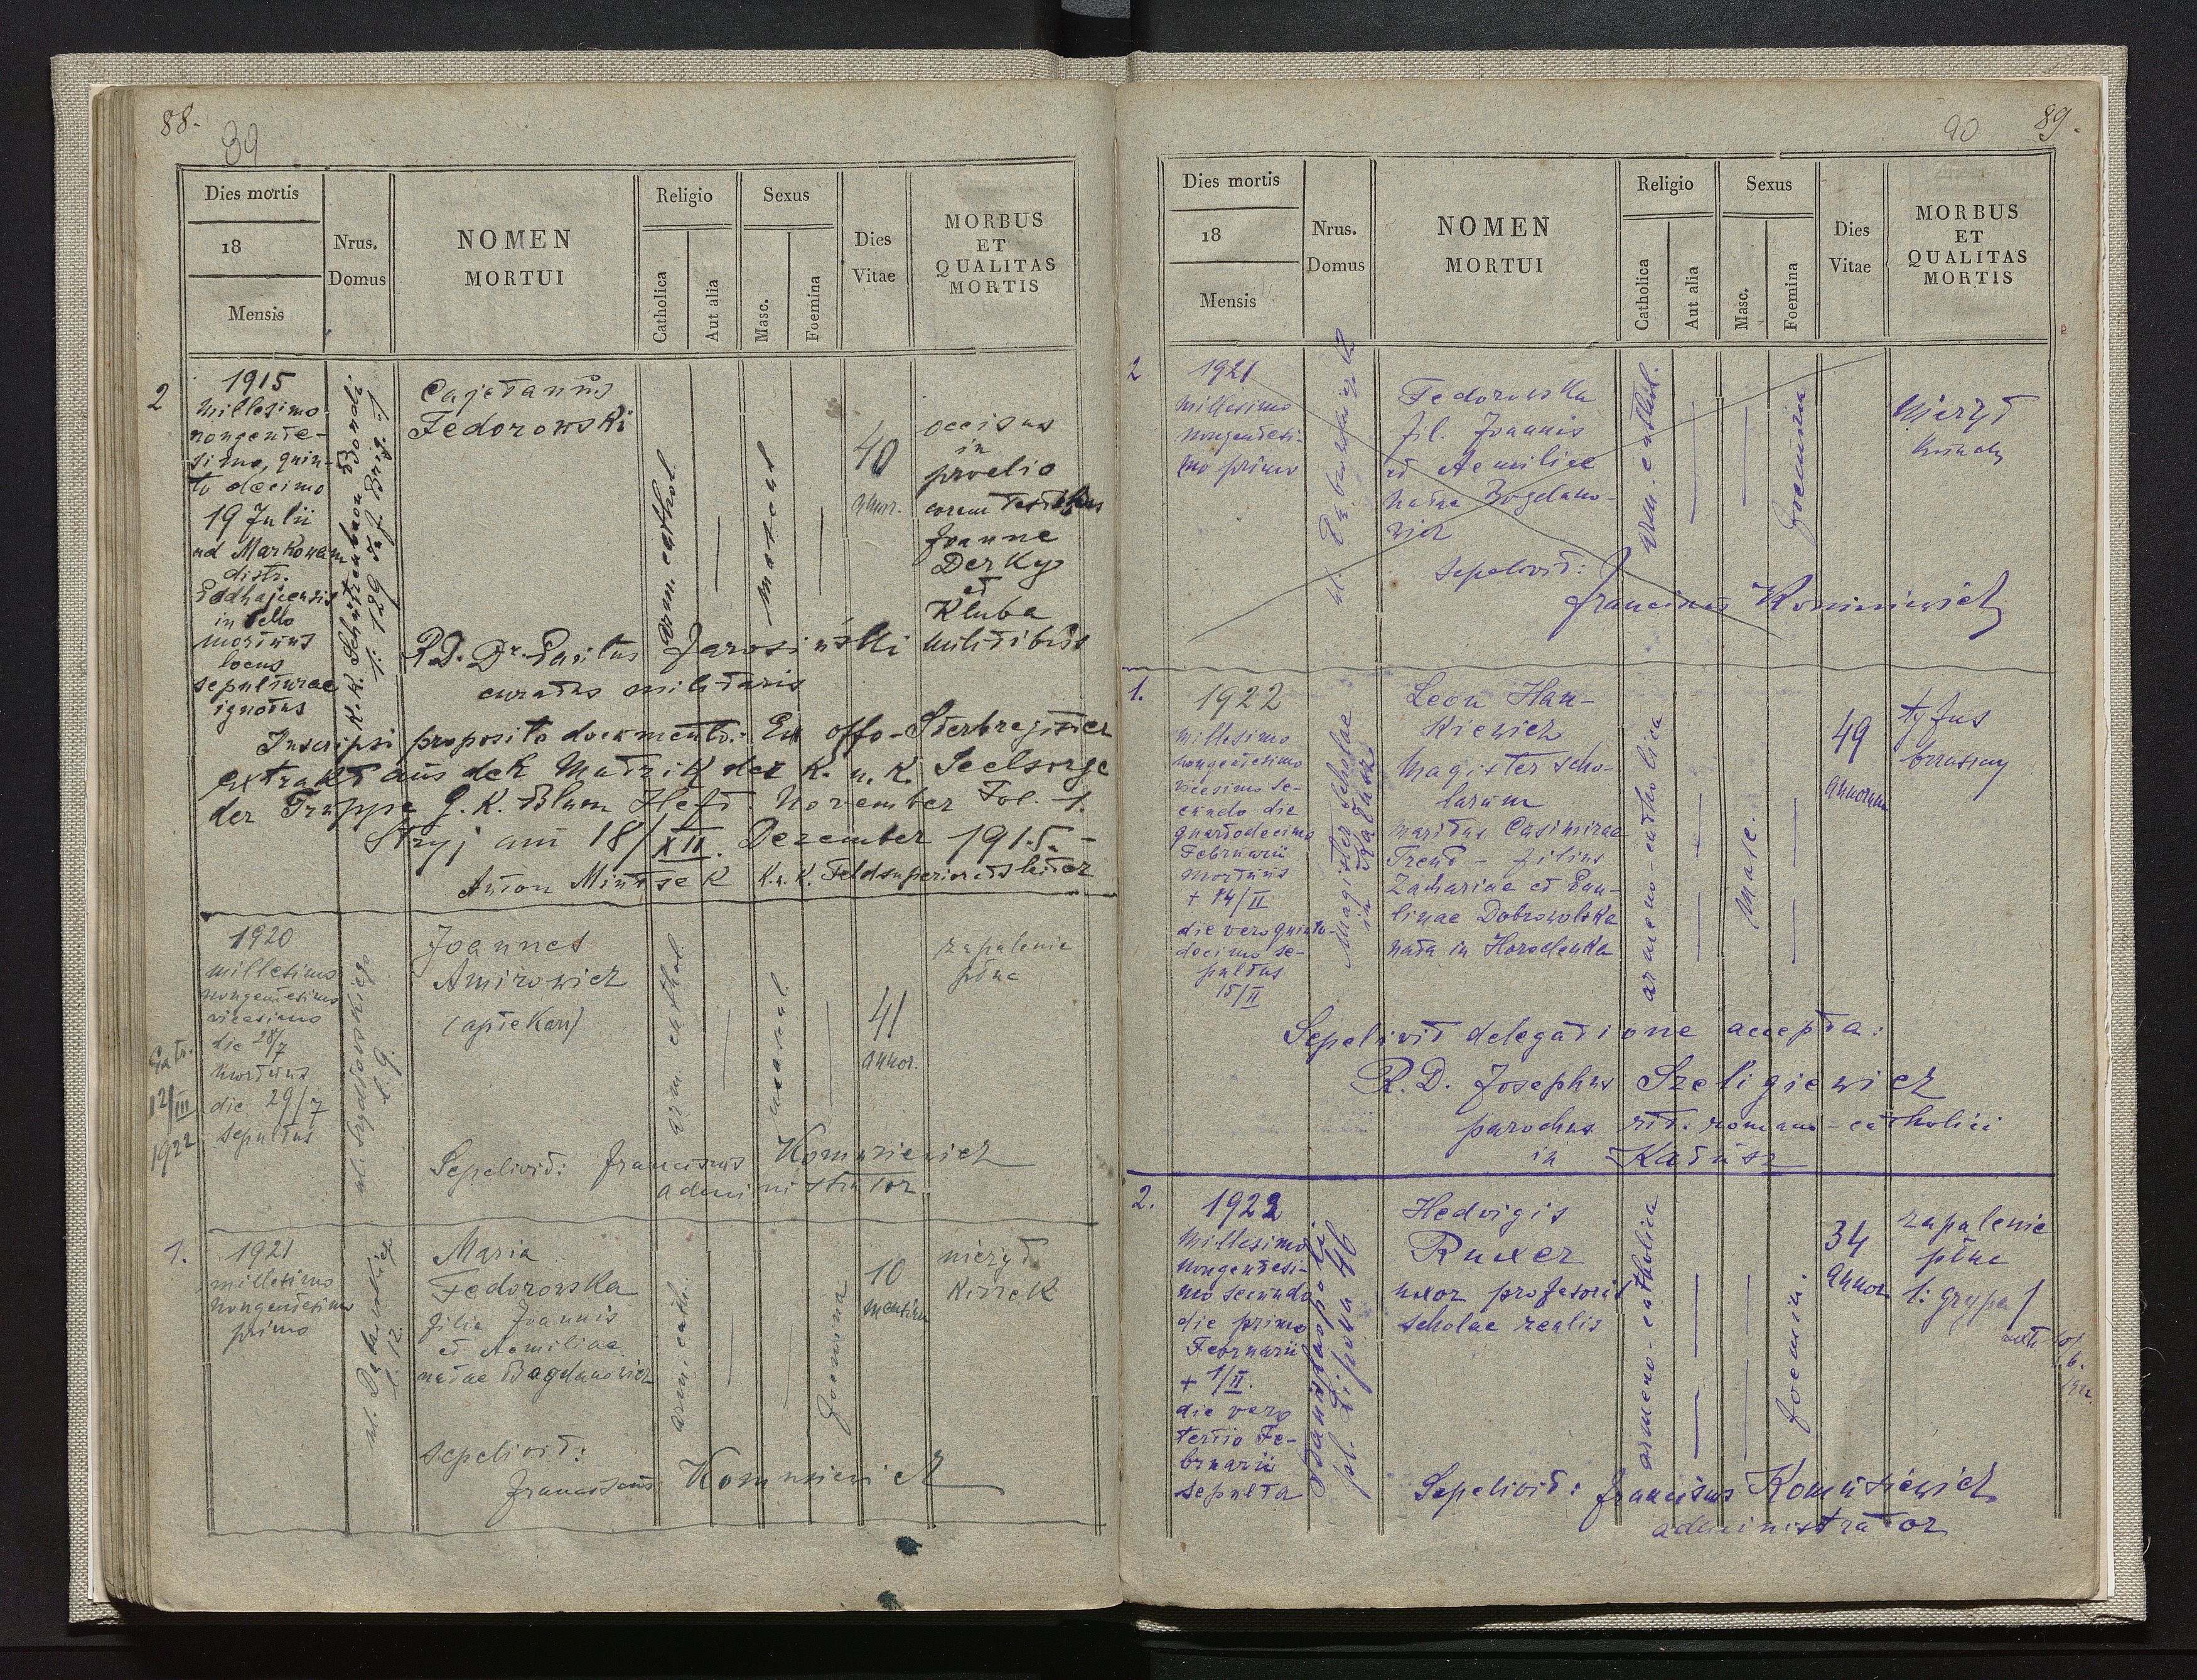 88.
39
Dies mortis
18
Mensis
Nrus.
Domus
NOMEN
MORTUI
Religio
Catholica
Aut alia
Sexus
Masc.
Foemina
Dies
Vitae
MORBUS
ET
QUALITAS
MORTIS
2
1915
Millesimo
nongente-
simo, quin-
to decimo
19 Julii
ad Markowam
distr.
Podhajcensis
in bello
mortuus
locus
sepulturae
ignotus
K. K. Schützenbaon
1: 129 Brig. :/
Cajetanus
Fedorowski
arm. cathol.
mascul
40
annor.
occisus
in
proelio
coram testibus
Joanne
Derkys
et
Kluba
militibus
R. D. Dr. Jarosiński
curatus militaris
Inscripsi proposito documento: Ex offo - Sterbregister
extrakt aus der Matrik der K. u. K. Seelsorge
der Truppe G. K. Blum Heft: November Fol. 1.
Stryj am 18/XII. Dezember 1915. -
Anton K. u. K. Feldsuperioratsleiter
12/III
1922
1920
millesimo
nongentesimo
vicesimo
die 28/7
mortuus
die 29/7
sepultus
Joannes
Amirowicz
(aptekarz)
arm. cathol.
mascul.
41
annor.
zapalenie
płuc
Sepelivit: Franciscus Komusiewicz
administrator
1.
1921
millesimo
nongentesimo
primo
l. 12.
Maria
Fedorowska
filia Joannis
et Aemiliae
natae Bogdanowicz
arm. cath.
foemina
10
mensium
nieżyt
kiszek
sepelivit:
Franciscus Komusiewicz
90
89.
Dies mortis
18
Mensis
Nrus.
Domus
NOMEN
MORTUI
Religio
Catholica
Aut alia
Sexus
Masc.
Foemina
Dies
Vitae
MORBUS
ET
QUALITAS
MORTIS
2
1921
Millesimo
nongentesi-
mo primo
Fedorowska
fil. Joannis
et Aemiliae
natae Bogdano-
wicz
arm. cathol.
foemina
nieżyt
sepelivit:
Franciscus Komusiewicz
1.
1922
Millesimo
nongentesimo
vicesimo se-
cundo die
quartodecimo
Februarii
mortuus
+ 14/II
die vero quinto-
decimo se-
pultus
15/II
Magister scholae
in Kałusz
Leon Han-
kiewicz
Magister scho-
larum
maritus Casimirae
Trend - filius
Zachariae et Pau-
linae Dobrowolska
nata in Horodenka
armeno-catholica
Masc.
49
annorum
tyfus
brzuszny
Sepelivit delegatione accepta:
R. D. Josephus Szeligiewicz
parochus rit. romano-catholici
in Kałusz
2.
1922
Millesimo
nongentesi-
mo secundo
die primo
Februarii
+ 1/II.
die vero
tertio Fe-
bruarii
sepulta
Stanislaopoli
pl. Lipowa 46
Hedvigis
Ruxer
uxor profesoris
scholae realis
armeno-catholica
foemin.
34
annor.
zapalenie
płuc
/: grypa /
Sepelivit: Franciscus Komusiewicz
administrator